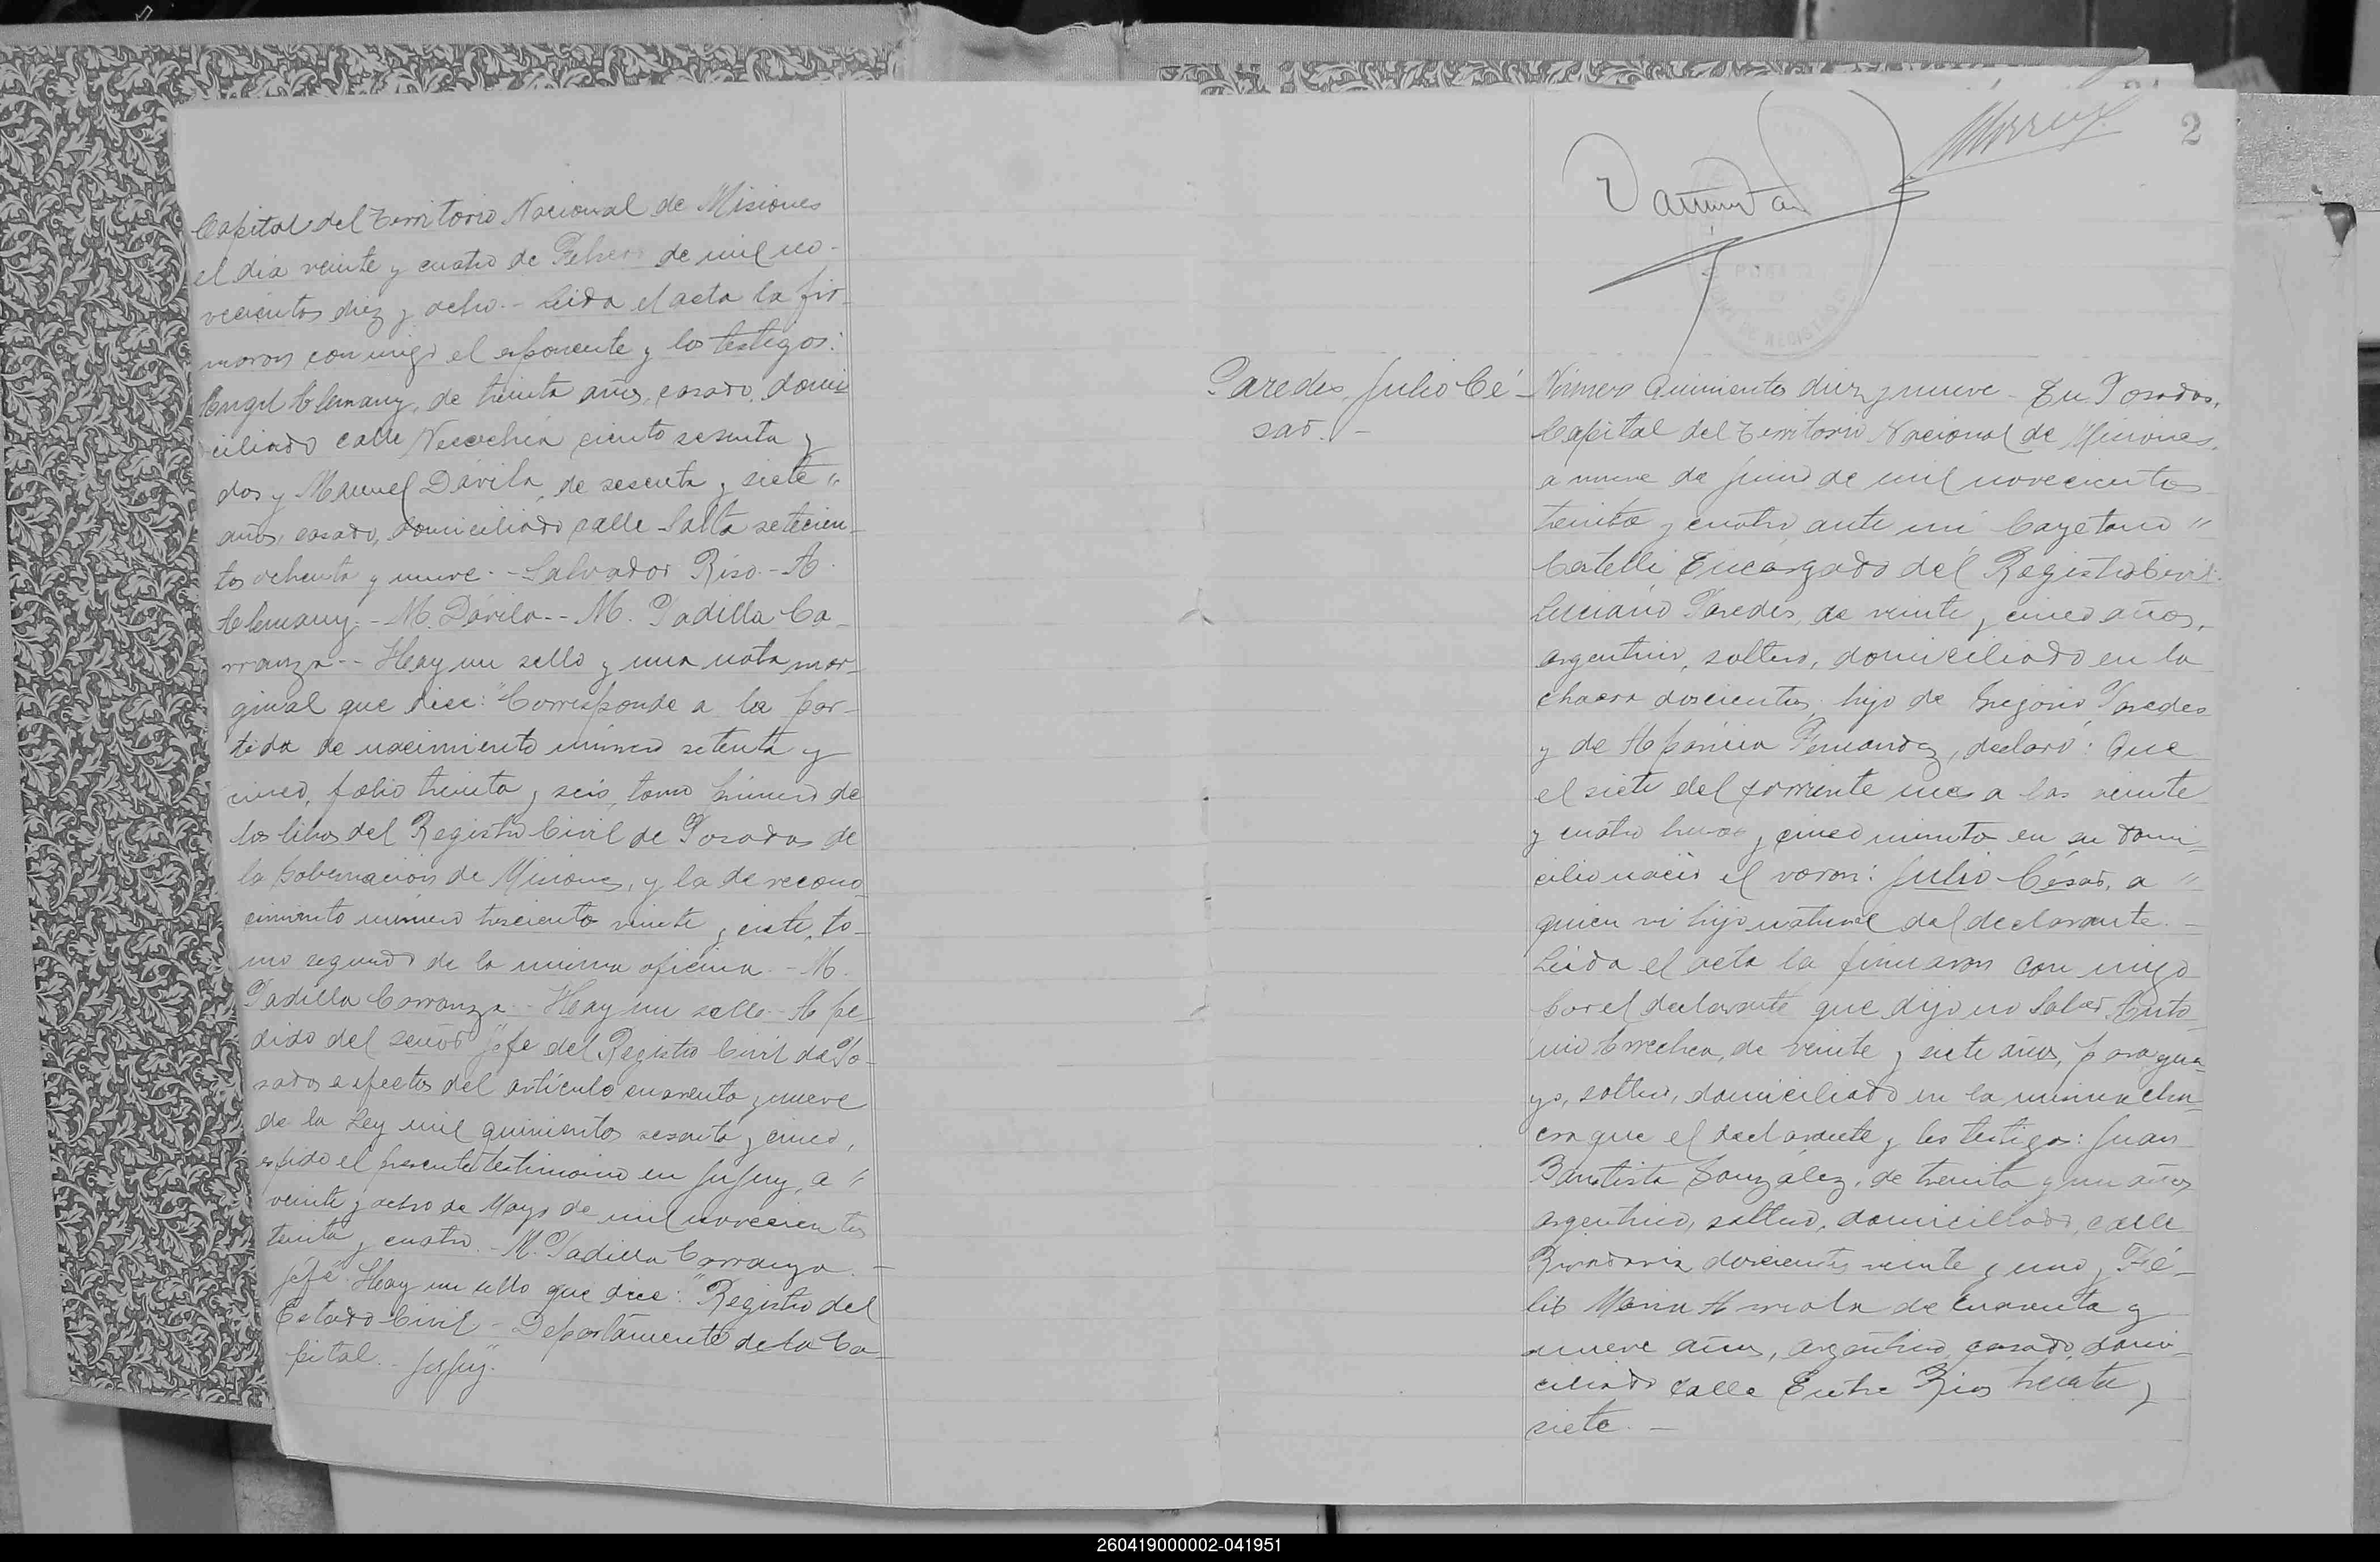 Capital del Territorio Nacional de Misiones
el día veinte y cuatro de Febrero de mil no-
vecientos diez y ocho.- Leida el acta la fir-
maron conmigo el exponente y los testigos:
Angel Alemany, de treinta años, casado, domi-
ciliado calle Necochea ciento sesenta y
dos y Manuel Dávila, de sesenta y siete "
años, casado, domiciliado calle Salta setecien-
tos ochenta y nueve.- Salvador Riso.- A.
Alemany.- M. Dávila.- M. Padilla Ca-
rranza.- Hay un sello y una nota mar-
ginal que dice: "Corresponde a la par-
tida de nacimiento número setenta y
cinco, folio treinta y seis, tomo primero de
los libros del Registro Civil de Posadas de
la Gobernación de Misiones, y la de recono-
cimiento número trescientos veinte y siete, to-
mo segundo de la misma oficina.- M.
Padilla Carranza.- Hay un sello.- A pe-
dido del señor Jefe del Registro Civil de Po-
sadas a efectos del artículo cuarenta y nueve
de la Ley mil quinientos sesenta y cinco,
expido el presente testimonio en Jujuy, a "
veinte y ocho de Mayo de mil novecientos
treinta y cuatro.- M. Padilla Carranza.-
Jefe". Hay un sello que dice: "Registro del
Estado Civil - Departamento de la Ca-
pital.- Jujuy".
2
Paredes, Julio Cé-
sar.-
Número Quinientos diez y nueve - En Posadas,
Capital del Territorio Nacional de Misiones,
a nueve de Junio de mil novecientos
treinta y cuatro, ante mí Cayetano "
Castelli Encargado del Registro Civil:
Luciano Paredes, de veinte y cinco años,
argentino, soltero, domiciliado en la
chacra doscientos, hijo de Gregorio Paredes
y de Aparicia Fernandez, declaró: Que
el siete del corriente mes a las veinte
y cuatro horas y cinco minutos en su domi-
cilio nació el varon: Julio César, a "
quien vi hijo natural del declarante.-
Leida el acta la firmaron conmigo
por el declarante que dijo no saber Anto-
nio Arrechea, de veinte y siete años, paragua-
yo, soltero, domiciliado en la misma cha-
cra que el declarante y los testigos: Juan
Bautista González, de treinta y un años
argentino, soltero, domiciliado, calle
Rivadavia doscientos veinte y uno y Fé-
lix Maria Arreola de cuarenta y
nueve años, argentino, casado, domi-
ciliado calle Entre Rios treinta y
siete.-
260419000002-041951